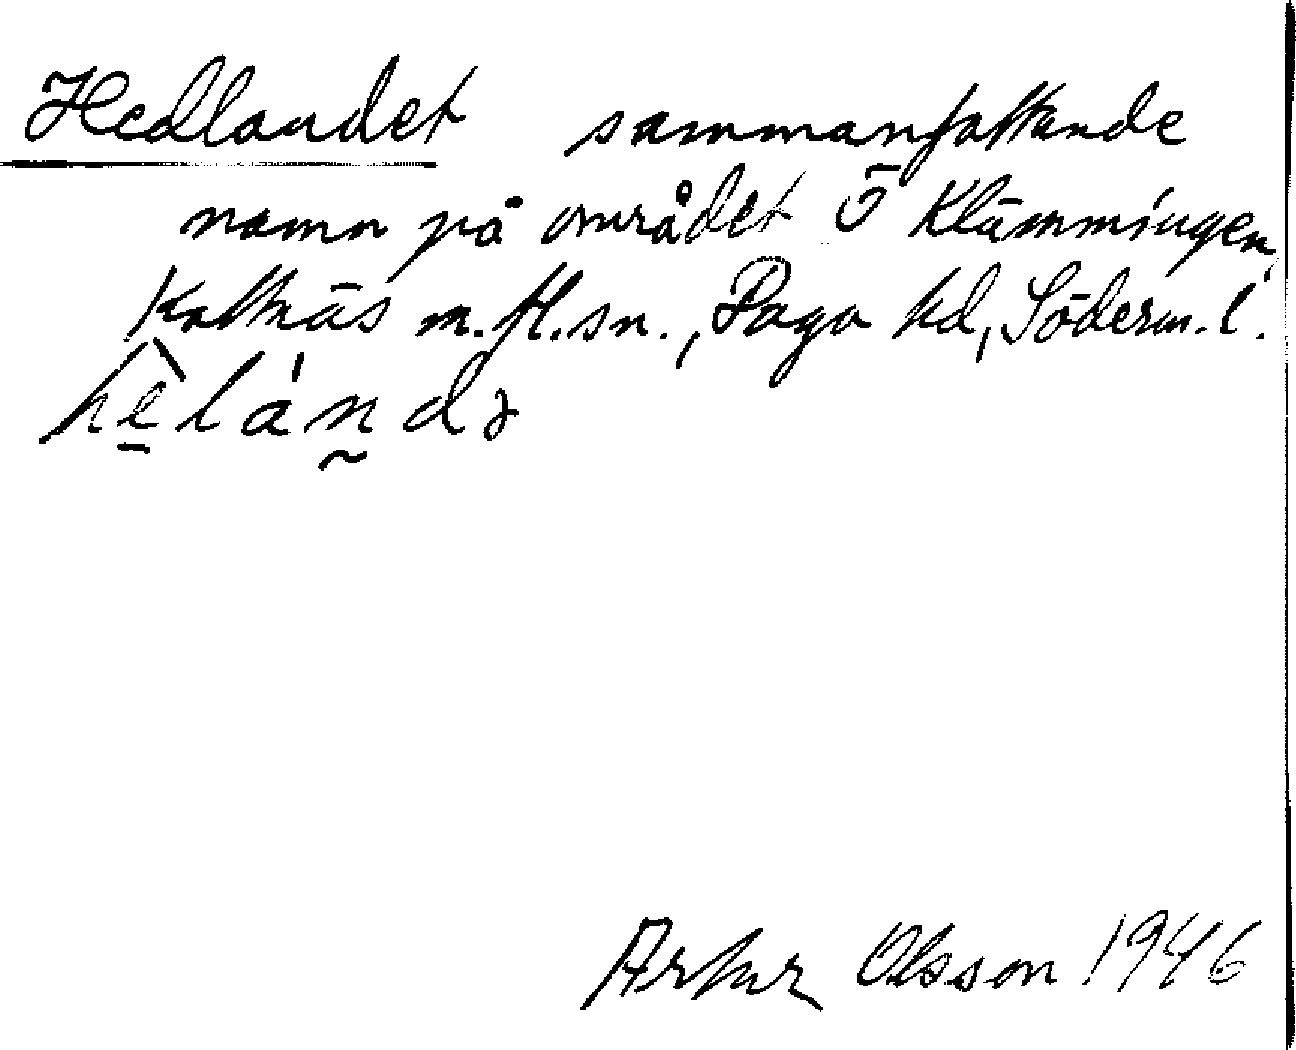 Hedlandet sammanfattande
namn på området Ö Klämmingen,
Kattnäs m.fl.sn., Daga hd, Söderm. l.
hèlándə
Artur Olsson 1946